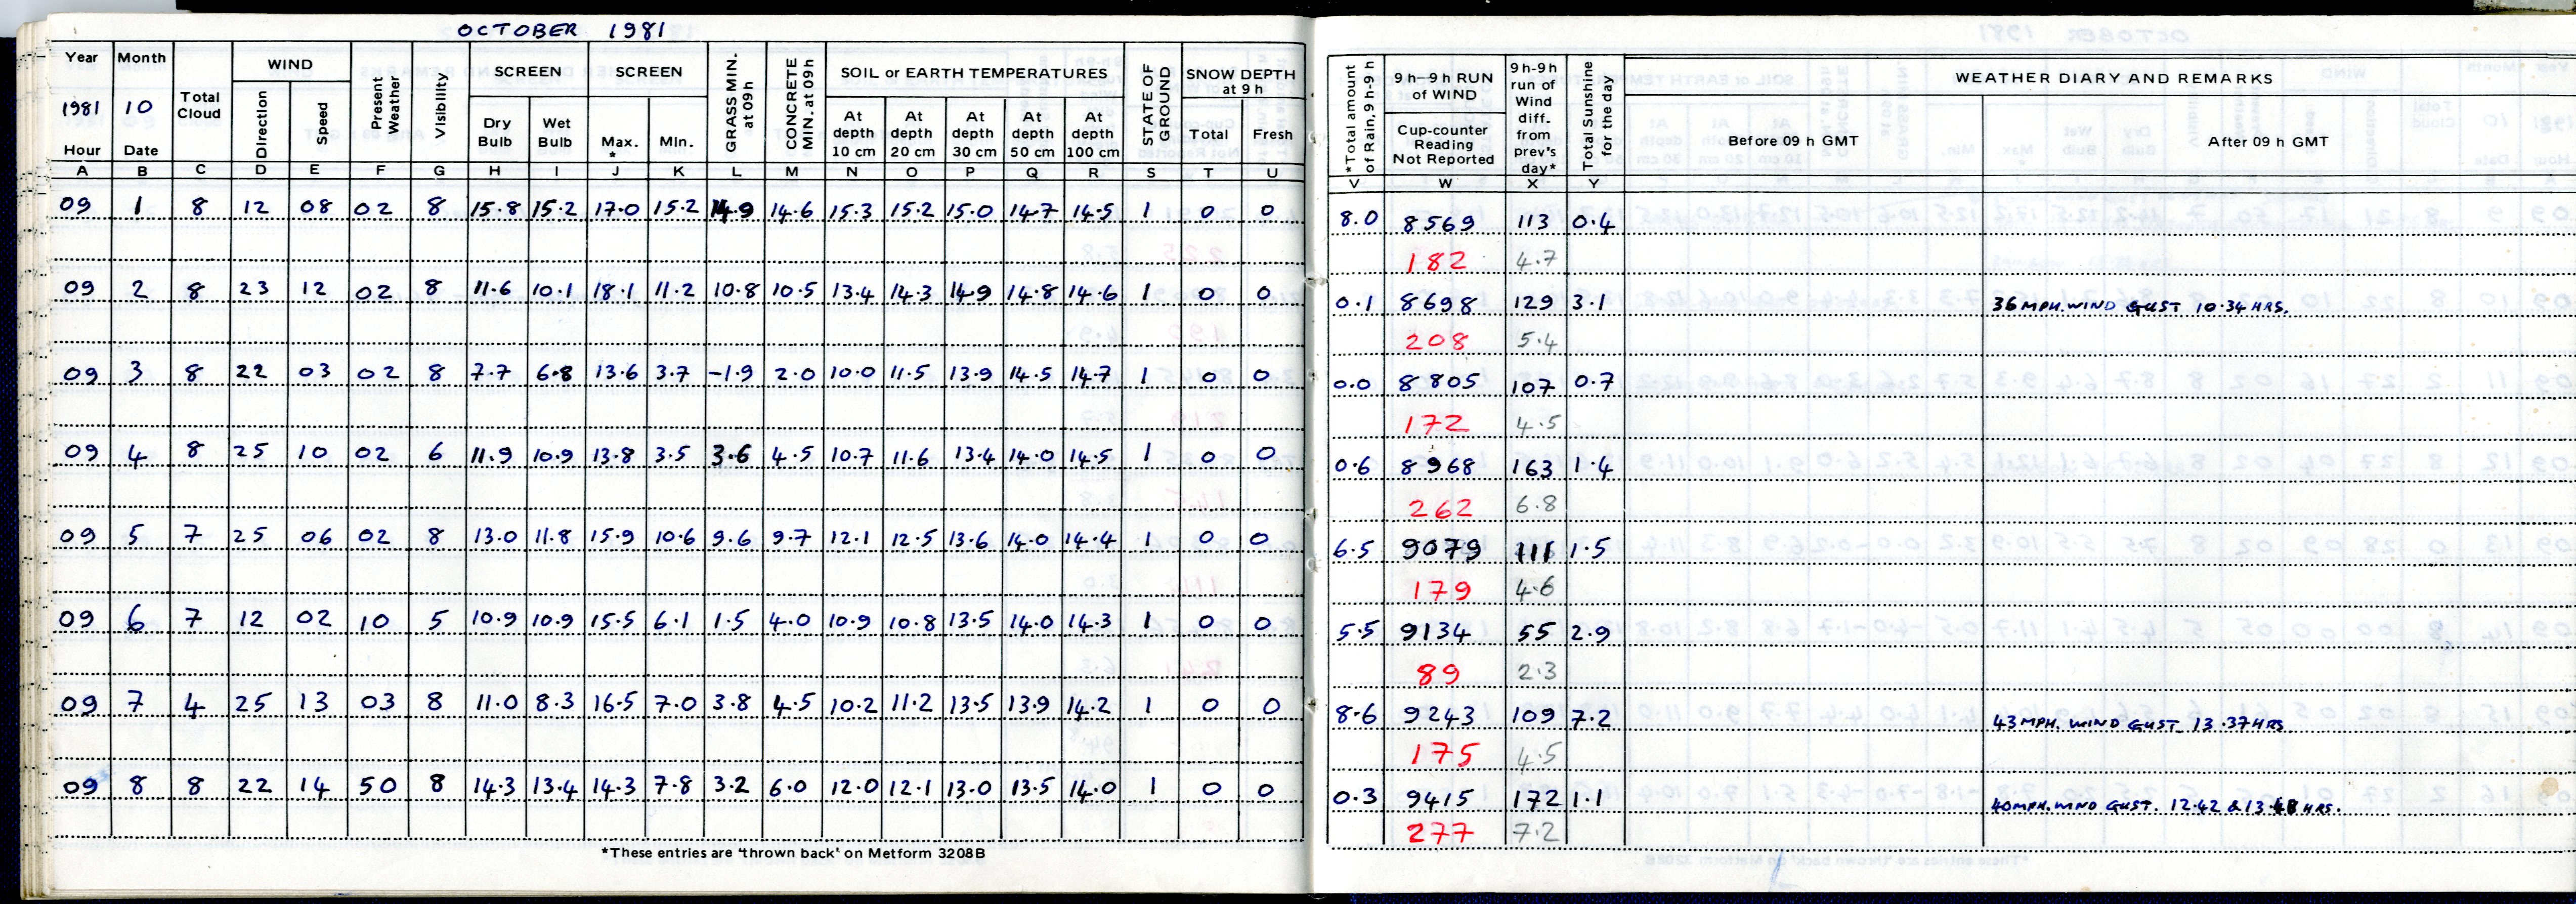 OCTOBER 1981
Year Month Total Cloud WIND Present Weather Visibility SCREEN SCREEN GRASS MIN. at 09h CONCRETE MIN. at 09h SOIL or EARTH TEMPERATURES STATE OF GROUND SNOW DEPTH at 9 h
1981 10 Direction Speed Dry Bulb Wet Bulb Max. * Min. At depth 10 cm At depth 20 cm At depth 30 cm At depth 50 cm At depth 100 cm Total Fresh
Hour Date
A B C D E F G H I J K L M N O P Q R S T U
09 1 8 12 08 02 8 15.8 15.2 17.0 15.2 14.9 14.6 15.3 15.2 15.0 14.7 14.5 1 0 0
09 2 8 23 12 02 8 11.6 10.1 18.1 11.2 10.8 10.5 13.4 14.3 14.9 14.8 14.6 1 0 0
09 3 8 22 03 02 8 7.7 6.8 13.6 3.7 -1.9 2.0 10.0 11.5 13.9 14.5 14.7 1 0 0
09 4 8 25 10 02 6 11.9 10.9 13.8 3.5 3.6 4.5 10.7 11.6 13.4 14.0 14.5 1 0 0
09 5 7 25 06 02 8 13.0 11.8 15.9 10.6 9.6 9.7 12.1 12.5 13.6 14.0 14.4 1 0 0
09 6 7 12 02 10 5 10.9 10.9 15.5 6.1 1.5 4.0 10.9 10.8 13.5 14.0 14.3 1 0 0
09 7 4 25 13 03 8 11.0 8.3 16.5 7.0 3.8 4.5 10.2 11.2 13.5 13.9 14.2 1 0 0
09 8 8 22 14 50 8 14.3 13.4 14.3 7.8 3.2 6.0 12.0 12.1 13.0 13.5 14.0 1 0 0
*These entries are 'thrown back' on Metform 3208B
*Total amount of Rain, 9 h-9 h 9 h-9 h RUN of WIND 9h-9h run of Wind diff. from prev's day* Total Sunshine for the day WEATHER DIARY AND REMARKS
Cup-counter Reading Not Reported Before 09 h GMT After 09 h GMT
V W X Y
8.0 8569 113 0.4
182 4.7
0.1 8698 129 3.1 36 MPH. WIND GUST 10.34 HRS.
208 5.4
0.0 8805 107 0.7
172 4.5
0.6 8968 163 1.4
262 6.8
6.5 9079 111 1.5
179 4.6
5.5 9134 55 2.9
89 2.3
8.6 9243 109 7.2 43 MPH. WIND GUST 13.37 HRS
175 4.5
0.3 9415 172 1.1 40 MPH. WIND GUST. 12.42 & HRS.
277 7.2